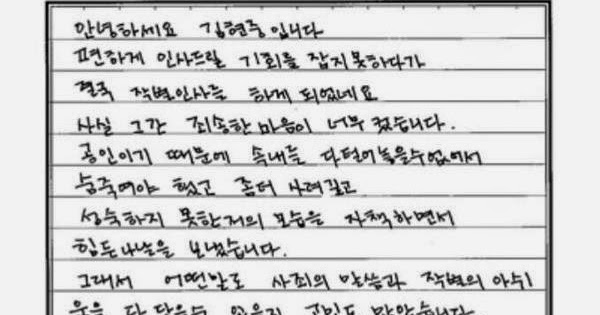 안녕하세요 김현중입니다
편하게 인사드릴 기회를 잡지못하다가
결국 작별인사를 하게 되었네요
사실 그간 죄송한마음이 너무 컸습니다.
공인이기 때문에 속내를 다털어놓을수없어서
숨죽여야 했고 좀더 사려깊고
성숙하지 못한저의 모습을 자책하면서
힘든나날을 보냈습니다.
그래서 어떤말로 사죄의 말씀과 작별의 아쉬
움을 다 담을수 있을지 고민도 많았습니다